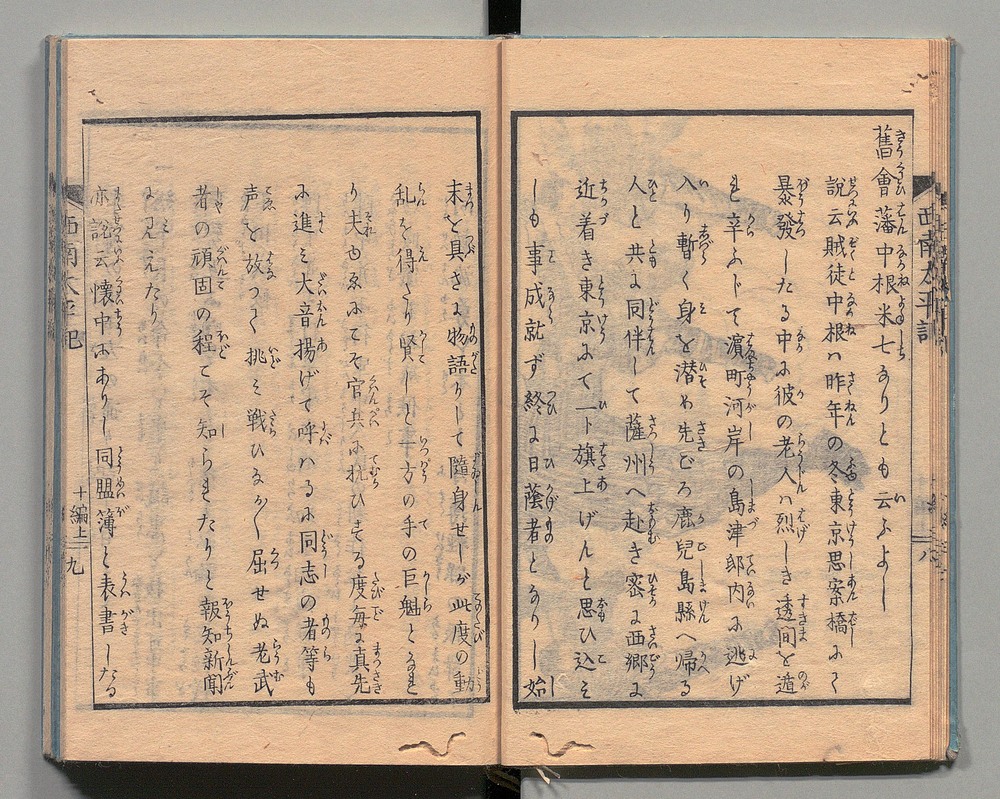 舊會藩中根米七なりとも云ふよし
説云賊徒中根ハ昨年の冬東京思案橋にて
暴發したる中に彼の老人ハ烈しき透間を遁
れ辛ふじて濵町河岸の島津邸内に逃げ
入り暫く身を潜め先ごろ鹿兒島縣へ帰る
人と共に同伴して薩州へ赴き密に西郷に
近着き東京にて一ト旗上げんと思ひ込そ
しも事成就ず終に日蔭者となりし始
末を具さに物語りして隨身せしが此度の動
乱を得たり賢しと一方の手の巨魁となれ
り夫ゆゑにてぞ官兵に抗ひする度毎に真先
に進ミ大音揚げて呼ハるに同志の者等も
声を放つて挑ミ戦ひるかく屈せぬ老武
者の頑固の程こそ知られたりと報知新聞
に見えたり
亦説云懐中にありし同盟簿と表書したる
西南太平記
八
西南太平記
十編上
九